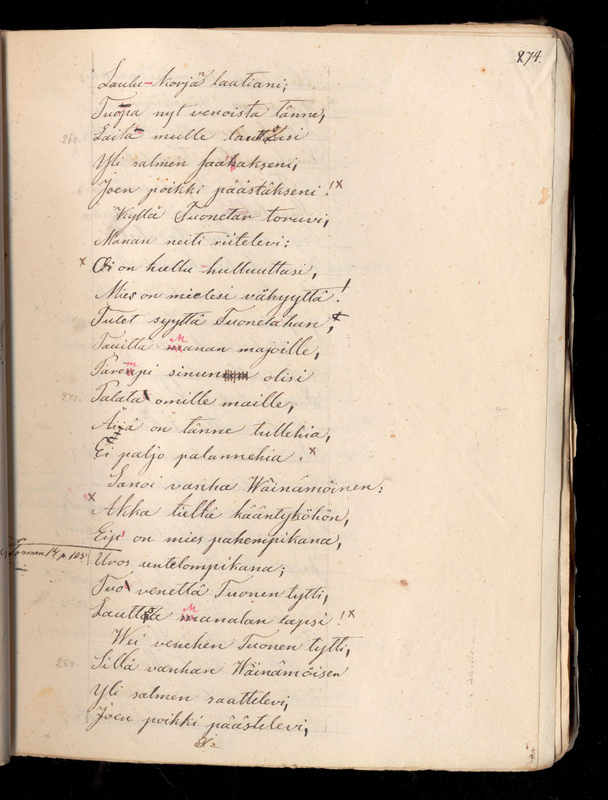 174.
Laulu-korjā laatiani;
Tuopa nyt venoista tänne,
260. Laita mulle lauttoisi
Yli salmen saahakseni,
Joen poikki päästäkseni!x
Kyllä Tuonetar toruvi,
Manan neiti riitelevi:
x Oi on hullu hulluuttasi,
Mies on mielesi vähyyttä!
Tulet syyttä Tuonelahan,
Tauitta Manan majoille,
Parempi sinun olisi
270. Palata omille maille,
Äijä on tänne tullehia,
Ei paljo palannehia.x
Sanoi vanha Wäinämöinen:
x Akka tieltä kääntyköhön,
Eip' on mies pahempikana,
Uros untelompikana;
Tuo venettä Tuonen tytti,
Lautta Manalan lapsi!x
Wei venehen Tuonen tytti,
280. Sillä vanhan Wäinämöisen
Yli salmen saattelevi,
Joen poikki päästelevi,